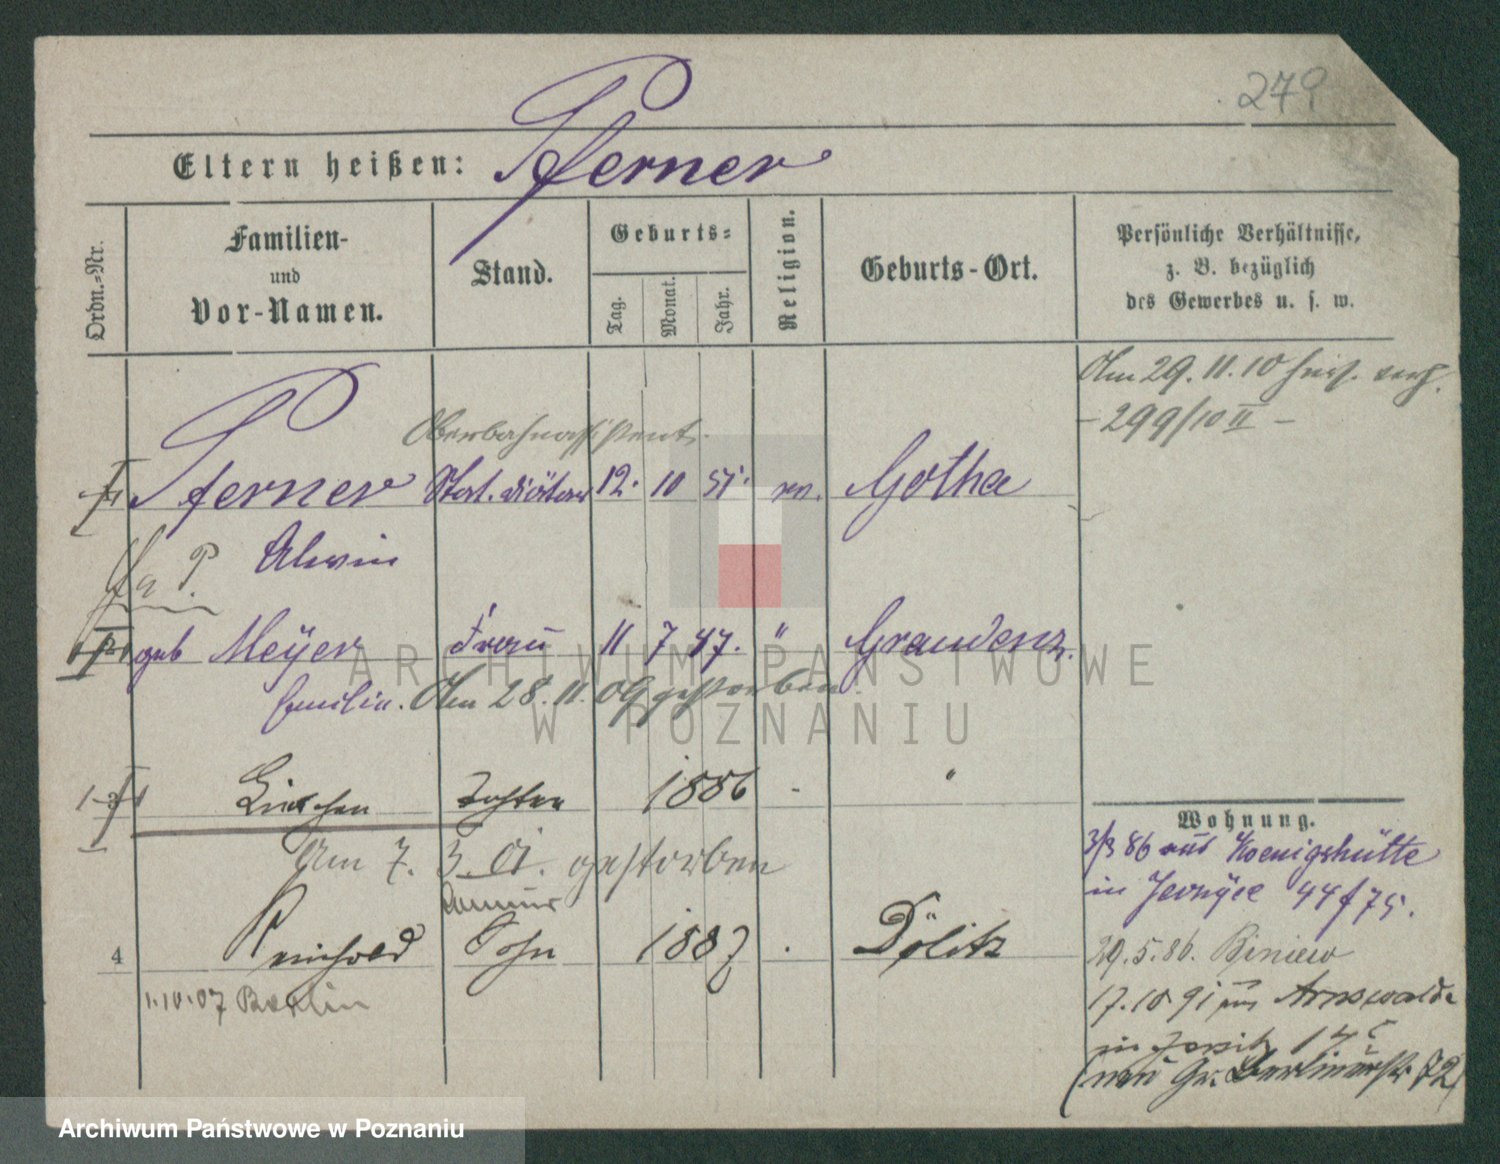 279
Eltern heißen: Pferner
Ordn.-Nr.
Familien-
und
Vor-Namen.
Stand.
Geburts-
Tag.
Monat.
Jahr.
Religion.
Geburts-Ort.
Persönliche Verhältnisse,
z. B. bezüglich
des Gewerbes u. s. w.
Am 29. 11. 10
- 299/10 II -
Oberbahnassistent.
1 Pferner Stat. Diätar 12. 10 51. ev. Gotha
Alwin
2 geb Meÿer Frau 11 7 47. " Graudenz.
Emilie. Am 28. 11. 09 gestorben.
3 Lieschen Tochter 1886 - "
Am 7. 3. 01. gestorben
4 Reinhold Sohn 1887 . Dölitz
1.10.07 Berlin
Wohnung.
3/3 86 aus Koenigshütte
in Jersÿce 44 f 75.
29. 5. 86. Biniew
17. 10 91 aus Arnswalde
in Jersitz 14
(neu Gr. Berlinerstr 72)
ARCHIWUM PAŃSTWOWE
W POZNANIU
Archiwum Państwowe w Poznaniu